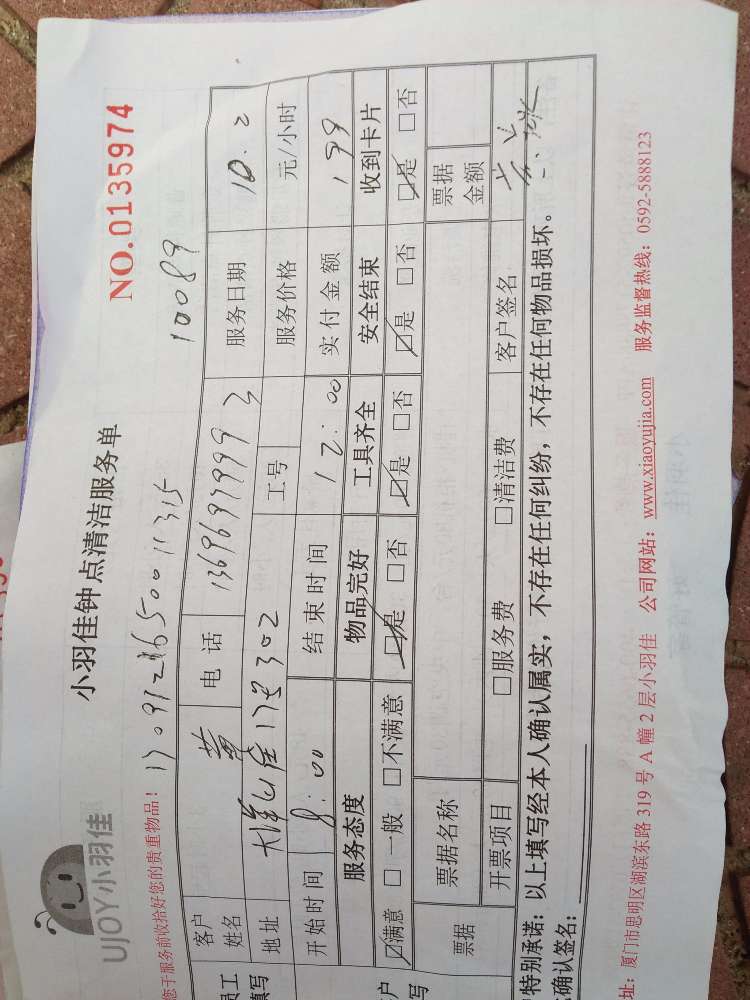 UJOY小羽佳
小羽佳钟点清洁服务单
NO.0135974
您于服务前收拾好您的贵重物品!
10089
员工填写 客户姓名 黄 电话 服务日期 10.2
地址 工号 服务价格 元/小时
开始时间 8:00 结束时间 12:00 实付金额 199
服务态度 物品完好 工具齐全 安全结束 收到卡片
☑满意 □一般 □不满意 ☑是 □否 ☑是 □否 ☑是 □否 ☑是 □否
票据 票据名称 票据金额
开票项目 □服务费 □清洁费 客户签名
特别承诺:以上填写经本人确认属实,不存在任何纠纷,不存在任何物品损坏。
确认签名:
址:厦门市思明区湖滨东路319号A幢2层小羽佳 公司网站:www.xiaoyujia.com 服务监督热线:0592-5888123